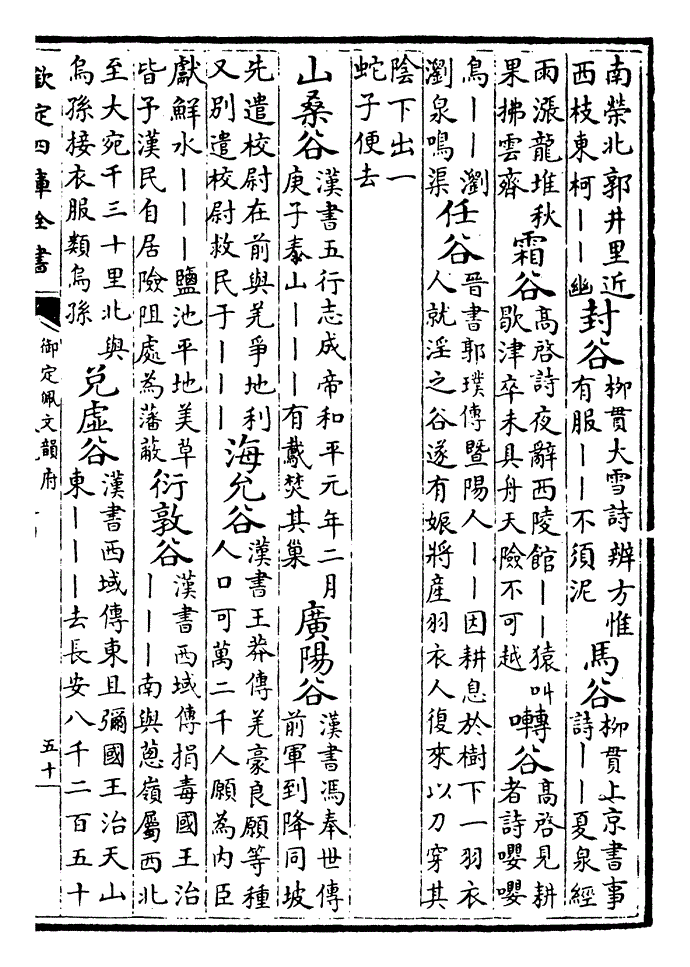 南榮北郭井里近
西枝東柯丨丨幽
封谷
柳貫大雪詩辨方惟
有服丨丨不須泥
馬谷
柳貫上京書事
詩丨丨夏泉經
雨漲龍堆秋
果拂雲齊
霜谷
髙啓詩夜辭西陵館丨丨猿叫
歇津卒未具舟天險不可越
囀谷
髙啓見耕
者詩嚶嚶
鳥丨丨瀏
瀏泉鳴渠
任谷
晉書郭璞傳暨陽人丨丨因耕息於樹下一羽衣
人就淫之谷遂有娠將産羽衣人復來以刀穿其
陰下出一
蛇子便去
山桑谷
漢書五行志成帝和平元年二月
庚子泰山丨丨丨有䳒焚其巢
廣陽谷
漢書馮奉世傳
前軍到降同坡
先遣校尉在前與羌爭地利
又別遣校尉救民于丨丨丨
海允谷
漢書王莽傳羌豪良願等種
人口可萬二千人願為内臣
獻鮮水丨丨丨鹽池平地美草
皆予漢民自居險阻處為藩蔽
衍敦谷
漢書西域傳捐毒國王治
丨丨丨南與蔥嶺屬西北
至大宛千三十里北與
烏孫接衣服類烏孫
兑虚谷
漢書西域傳東且彌國王治天山
東丨丨丨去長安八千二百五十
欽定四庫全書
御定佩文韻府
五十